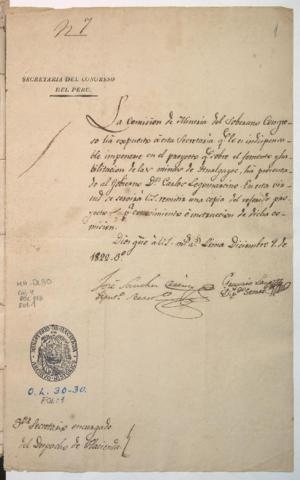 Nº 7
1
SECRETARIA DEL CONGRESO
DEL PERU.
La Comision de Mineria del Soberano Congre-
so ha expuesto á esta Secretaria qe le es indispensa-
ble imponerse en el proyecto qe sobre el fomento y ha-
bilitacion de las minas de Hualgayoc, ha presenta-
do al Gobierno Dn Carlos Lagomarcino. En esta vir-
tud se servirá U.S. remitir una copia del referido pro-
yecto pa qe conocimiento é instruccion de dicha co-
mision.
Dios gue á U.S. ms as Lima Diciembre 9. de
1822. 3º
José Sanchez Carrion
Diputo Secreto
Gregorio
Dipdo Secreto
MH-OL30
Caj. 4
FOL.1
MINISTERIO DE HACIENDA
ARCHIVO HISTORICO
O.L. 30-30.
FOL: 1
Sor Secretario encargado
del Despacho de Hacienda